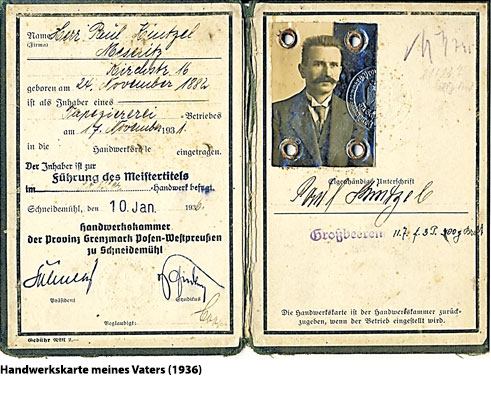 Name Herr Paul Kintzel
(Firma) Meseritz
Kirchstr. 16
geboren am 24. November 1882
ist als Inhaber eines
Tapeziererei - Betriebes
am 17. November 1931
in die Handwerksrolle eingetragen.
Der Inhaber ist zur
Führung des Meistertitels
im Handwerk befugt.
Schneidemühl, den 10 Jan. 1936
Handwerkskammer
der Provinz Grenzmark Posen-Westpreußen
zu Schneidemühl
Präsident Syndikus
Beglaubigt:
Gebühr RM 2.—
Eigenhändige Unterschrift
Paul Kintzel
Großbeeren 11.7.
Die Handwerkskarte ist der Handwerkskammer zurück-
zugeben, wenn der Betrieb eingestellt wird.
Handwerkskarte meines Vaters (1936)